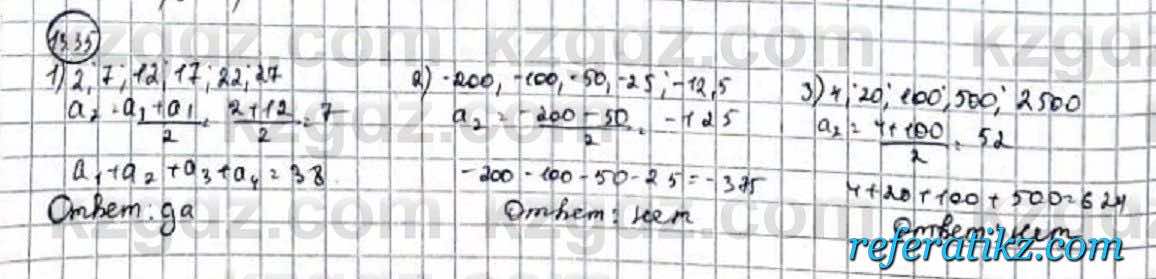 1335
1) 2; 7; 12; 17; 22; 27
a₂ = (a₃ + a₁)/2 = (2+12)/2 = 7
a₁ + a₂ + a₃ + a₄ = 38
Ответ: да
2) -200, -100, -50, -25; -12,5
a₂ = (-200 - 50)/2 = -125
-200 - 100 - 50 - 25 = -375
Ответ: нет
3) 4; 20; 100; 500; 2500
a₂ = (4+100)/2 = 52
4 + 20 + 100 + 500 = 624
Ответ: нет
referatikz.com
kzgdz.com